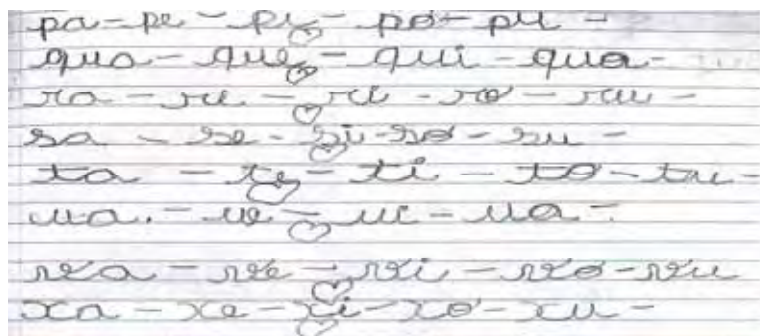 pa - pe - pi - po - pu -
qua - que - qui - quo -
ra - re - ri - ro - ru -
sa - se - si - so - su -
ta - te - ti - to - tu -
ua. - ue - ui - uo -
va - ve - vi - vo - vu
xa - xe - xi - xo - xu -